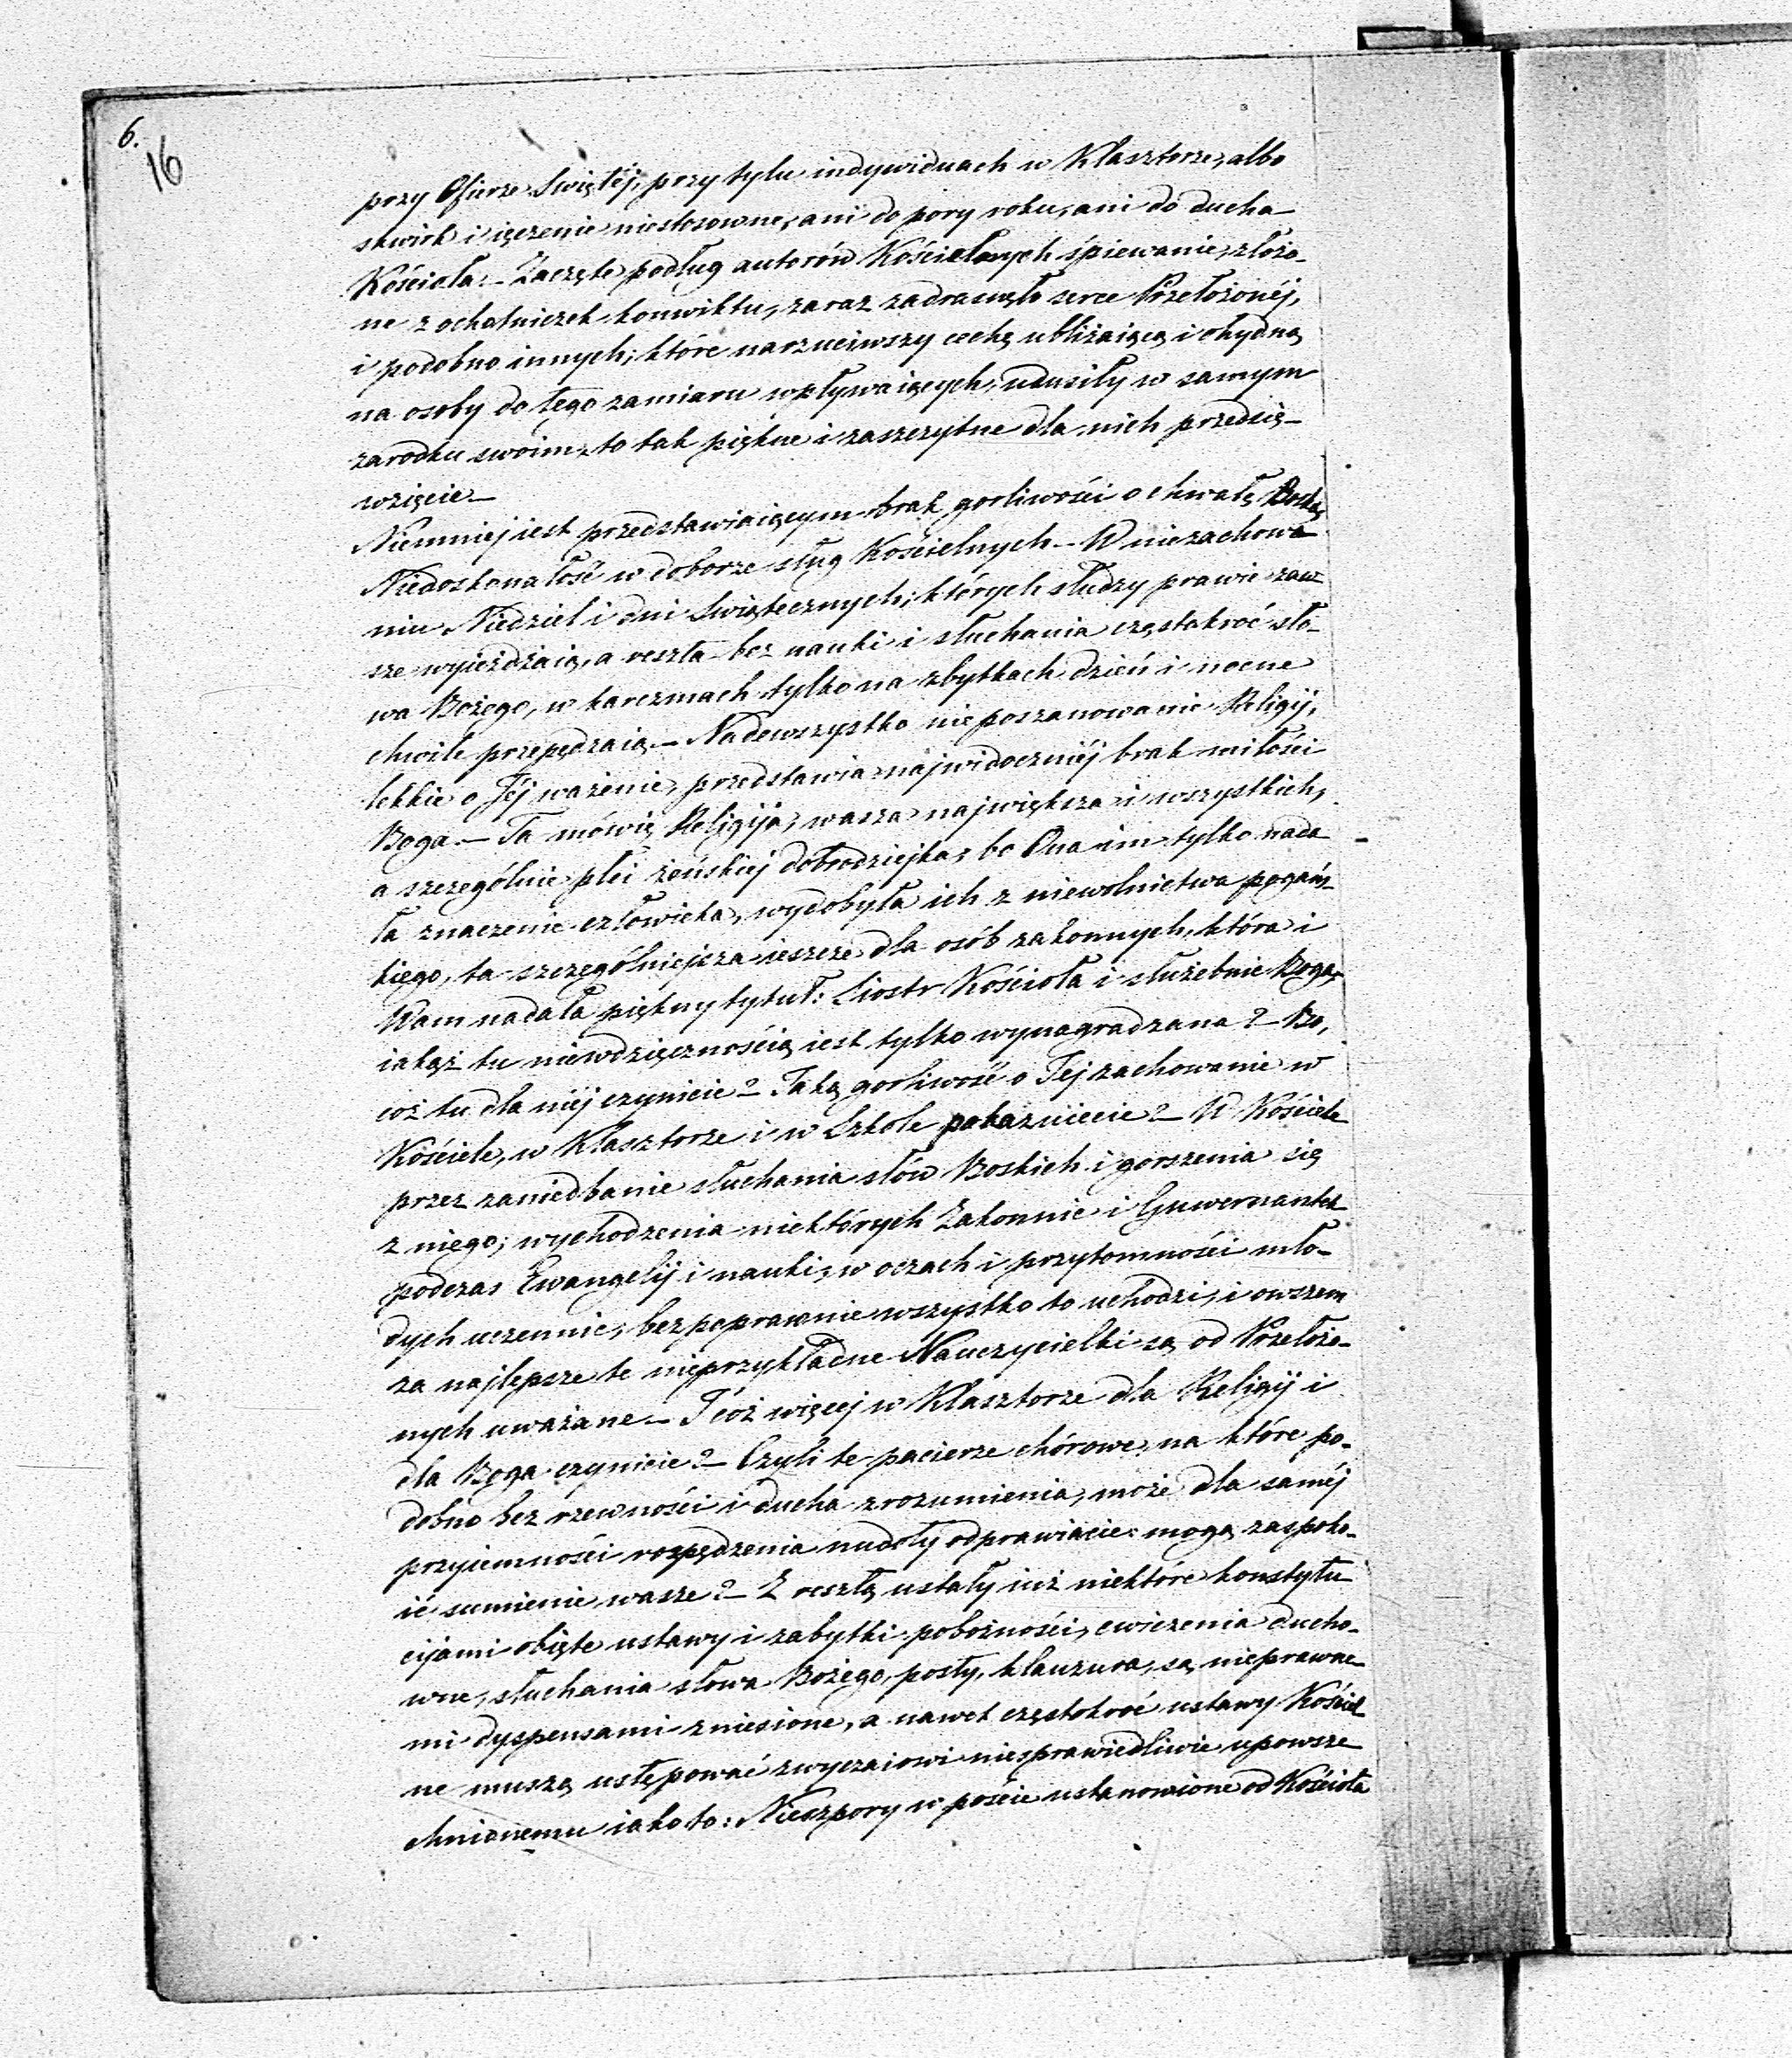 6.
16
przy Ofierze Swiętéj, przy tylu indywiduach w Klasztorze, albo
skwirk i ięczenie niestosowne, ani do pory roku, ani do ducha
Kościoła. – Zaczęte podług autorów Kościelnych śpiewanie, złożo-
ne z ochotniczek konwiktu, zaraz zadrasnęło serce Przełożonéj,
i podobno innych; które narzuciwszy cechę ubliżaiącą i ohydną
na osoby do tego zamiaru wpływaiących, udusiły w samym
zarodku swoim, to tak piękne i zaszczytne dla nich przedsię-
wzięcie –
Niemniej iest przedstawiaiącym brak gorliwości o chwałę Boską
Niedoskonałość w doborze sług Kościelnych – W niezachowa-
niu Niedziel i dni Swiątecznych; których słudzy prawie zaw-
sze wyieżdżaią, a reszta bez nauki i słuchania częstokroć sło-
wa Bożego, w karczmach tylko na zbytkach dzień i nocne
chwile przepędzaią. – Nadewszystko nieposzanowanie Religij,
lekkie o Jéj ważenie, przedstawia najwidoczniéj brak miłości
Boga. – Ta mówię Religija, wasza największa i wszystkich,
a szczególnie płci żeńskiej dobrodziejka, bo Ona im tylko nada-
ła znaczenie człowieka, wydobyła ich z niewolnictwa pogańs-
kiego, ta szczególniejsza ieszcze dla osób zakonnych, która i
Wam nadała piękny tytuł: Siostr Kościoła i służebnic Boga,
iakąż tu niewdzięcznością iest tylko wynagradzana? – Bo,
coż tu dla niéj czynicie? Jaką gorliwość o Jej zachowanie w
Kościele, w Klasztorze i w Szkole pokazuiecie? – W Kościele
przez zaniedbanie słuchania słów Boskich i gorszenia się
z niego; wychodzenia niektórych Zakonnic i Guwernantek
podczas Ewangelij i nauki, w oczach i przytomności mło-
dych uczennic, bezpoprawnie wszystko to uchodzi, i owszem
za najlepsze te nieprzykładne Nauczycielki są od Przełożo-
nych uważane. – I cóż więcej w Klasztorze dla Religij i
dla Boga czynicie? – Czyli te pacierze chórowe, na które po-
dobno bez rzewności i ducha zrozumienia, może dla saméj
przyiemności rozpędzenia nudoty odprawiacie: mogą zaspoko-
ić sumienie wasze? – Z resztą ustały iuż niektóre konstytu-
cijami obięte ustawy i zabytki pobożności, cwiczenia ducho-
wne, słuchania słowa Bożego, posty, klauzura, są nieprawne-
mi dyspensami zniesione, a nawet częstokroć ustawy Kościel-
ne muszą ustępować zwyczaiowi niesprawiedliwie upowsze-
chnionemu iako to: Nieszpory w poście ustanowione od Kościoła